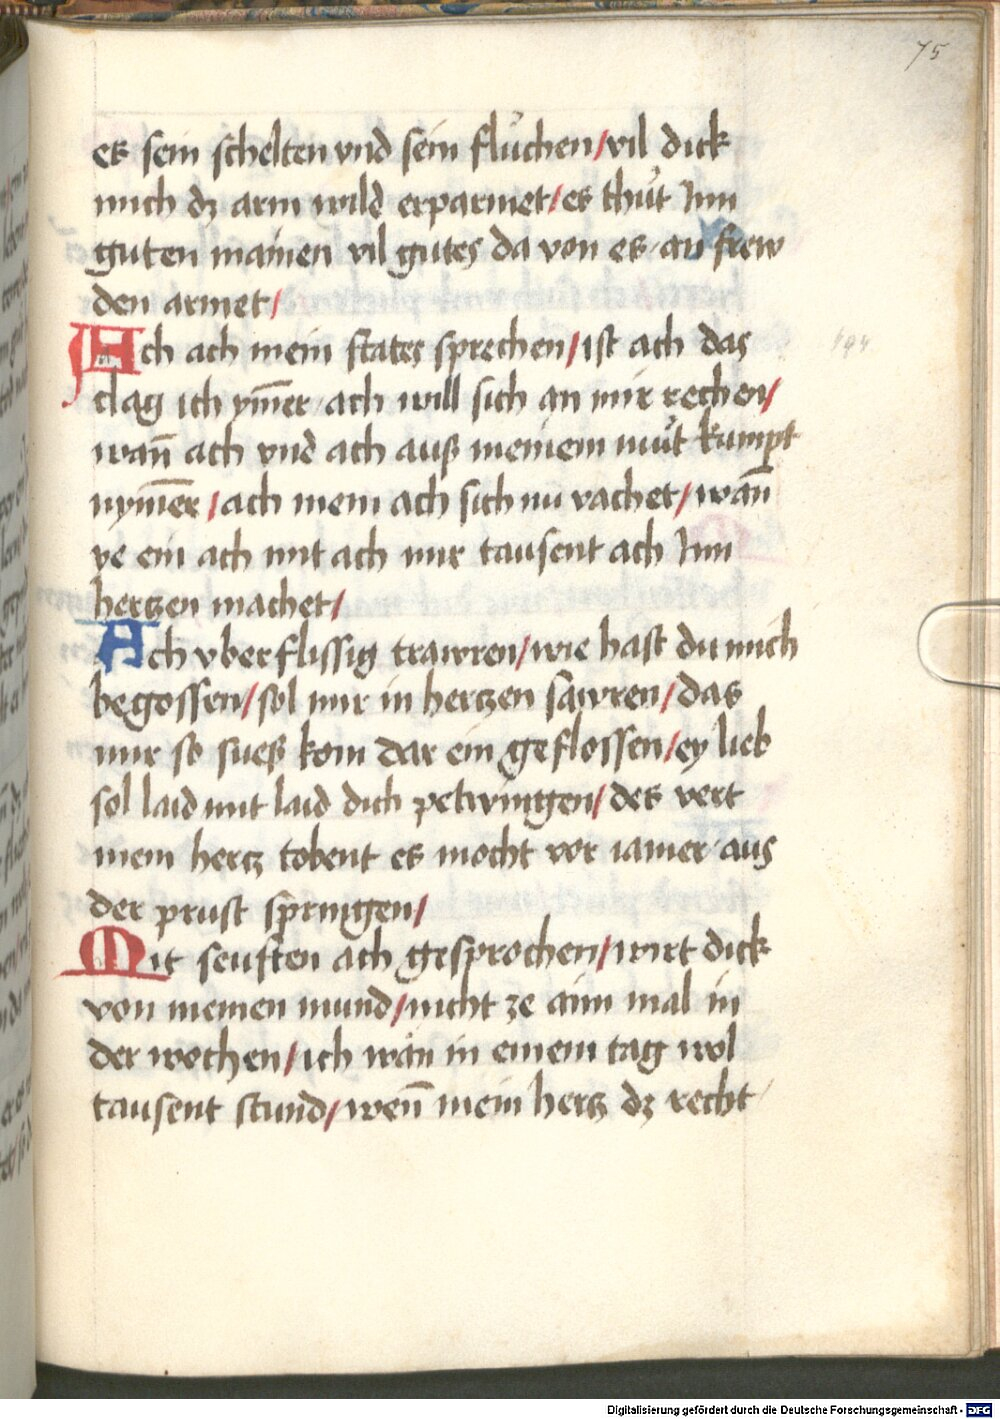 75
es sein schelten vnd sein flůchen / vil dick
mich dz arm wild erparmet / es thůt Inn
guten mainen vil gutes da von es an frew
den armet /
Ach ach mein states sprechen / ist ach das
clag ich ym̄er ach will sich an mir rechen /
wañ ach vnd ach auß meinem můt kumpt
nym̄er / ach mein ach sich nu vachet / wañ
ye ein ach mit ach mir tausent ach Inn
hertzen machet /
Ach vberflissig trawren / wie hast du mich
begossen / sol mir in hertzen sawren / das
mir so sueß kom dar ein geflossen / ey lieb
sol laid mit laid dich petwingen / des vert
mein hertz tobent es mocht vor iamer aus
der prust springen /
Mit seuften ach gesprochen / wirt dick
von meinen mund / nicht ze aim mal in
der wochen / ich wän in einem tag wol
tausent stund / weñ mein hertz dz recht
Digitalisierung gefördert durch die Deutsche Forschungsgemeinschaft - DFG